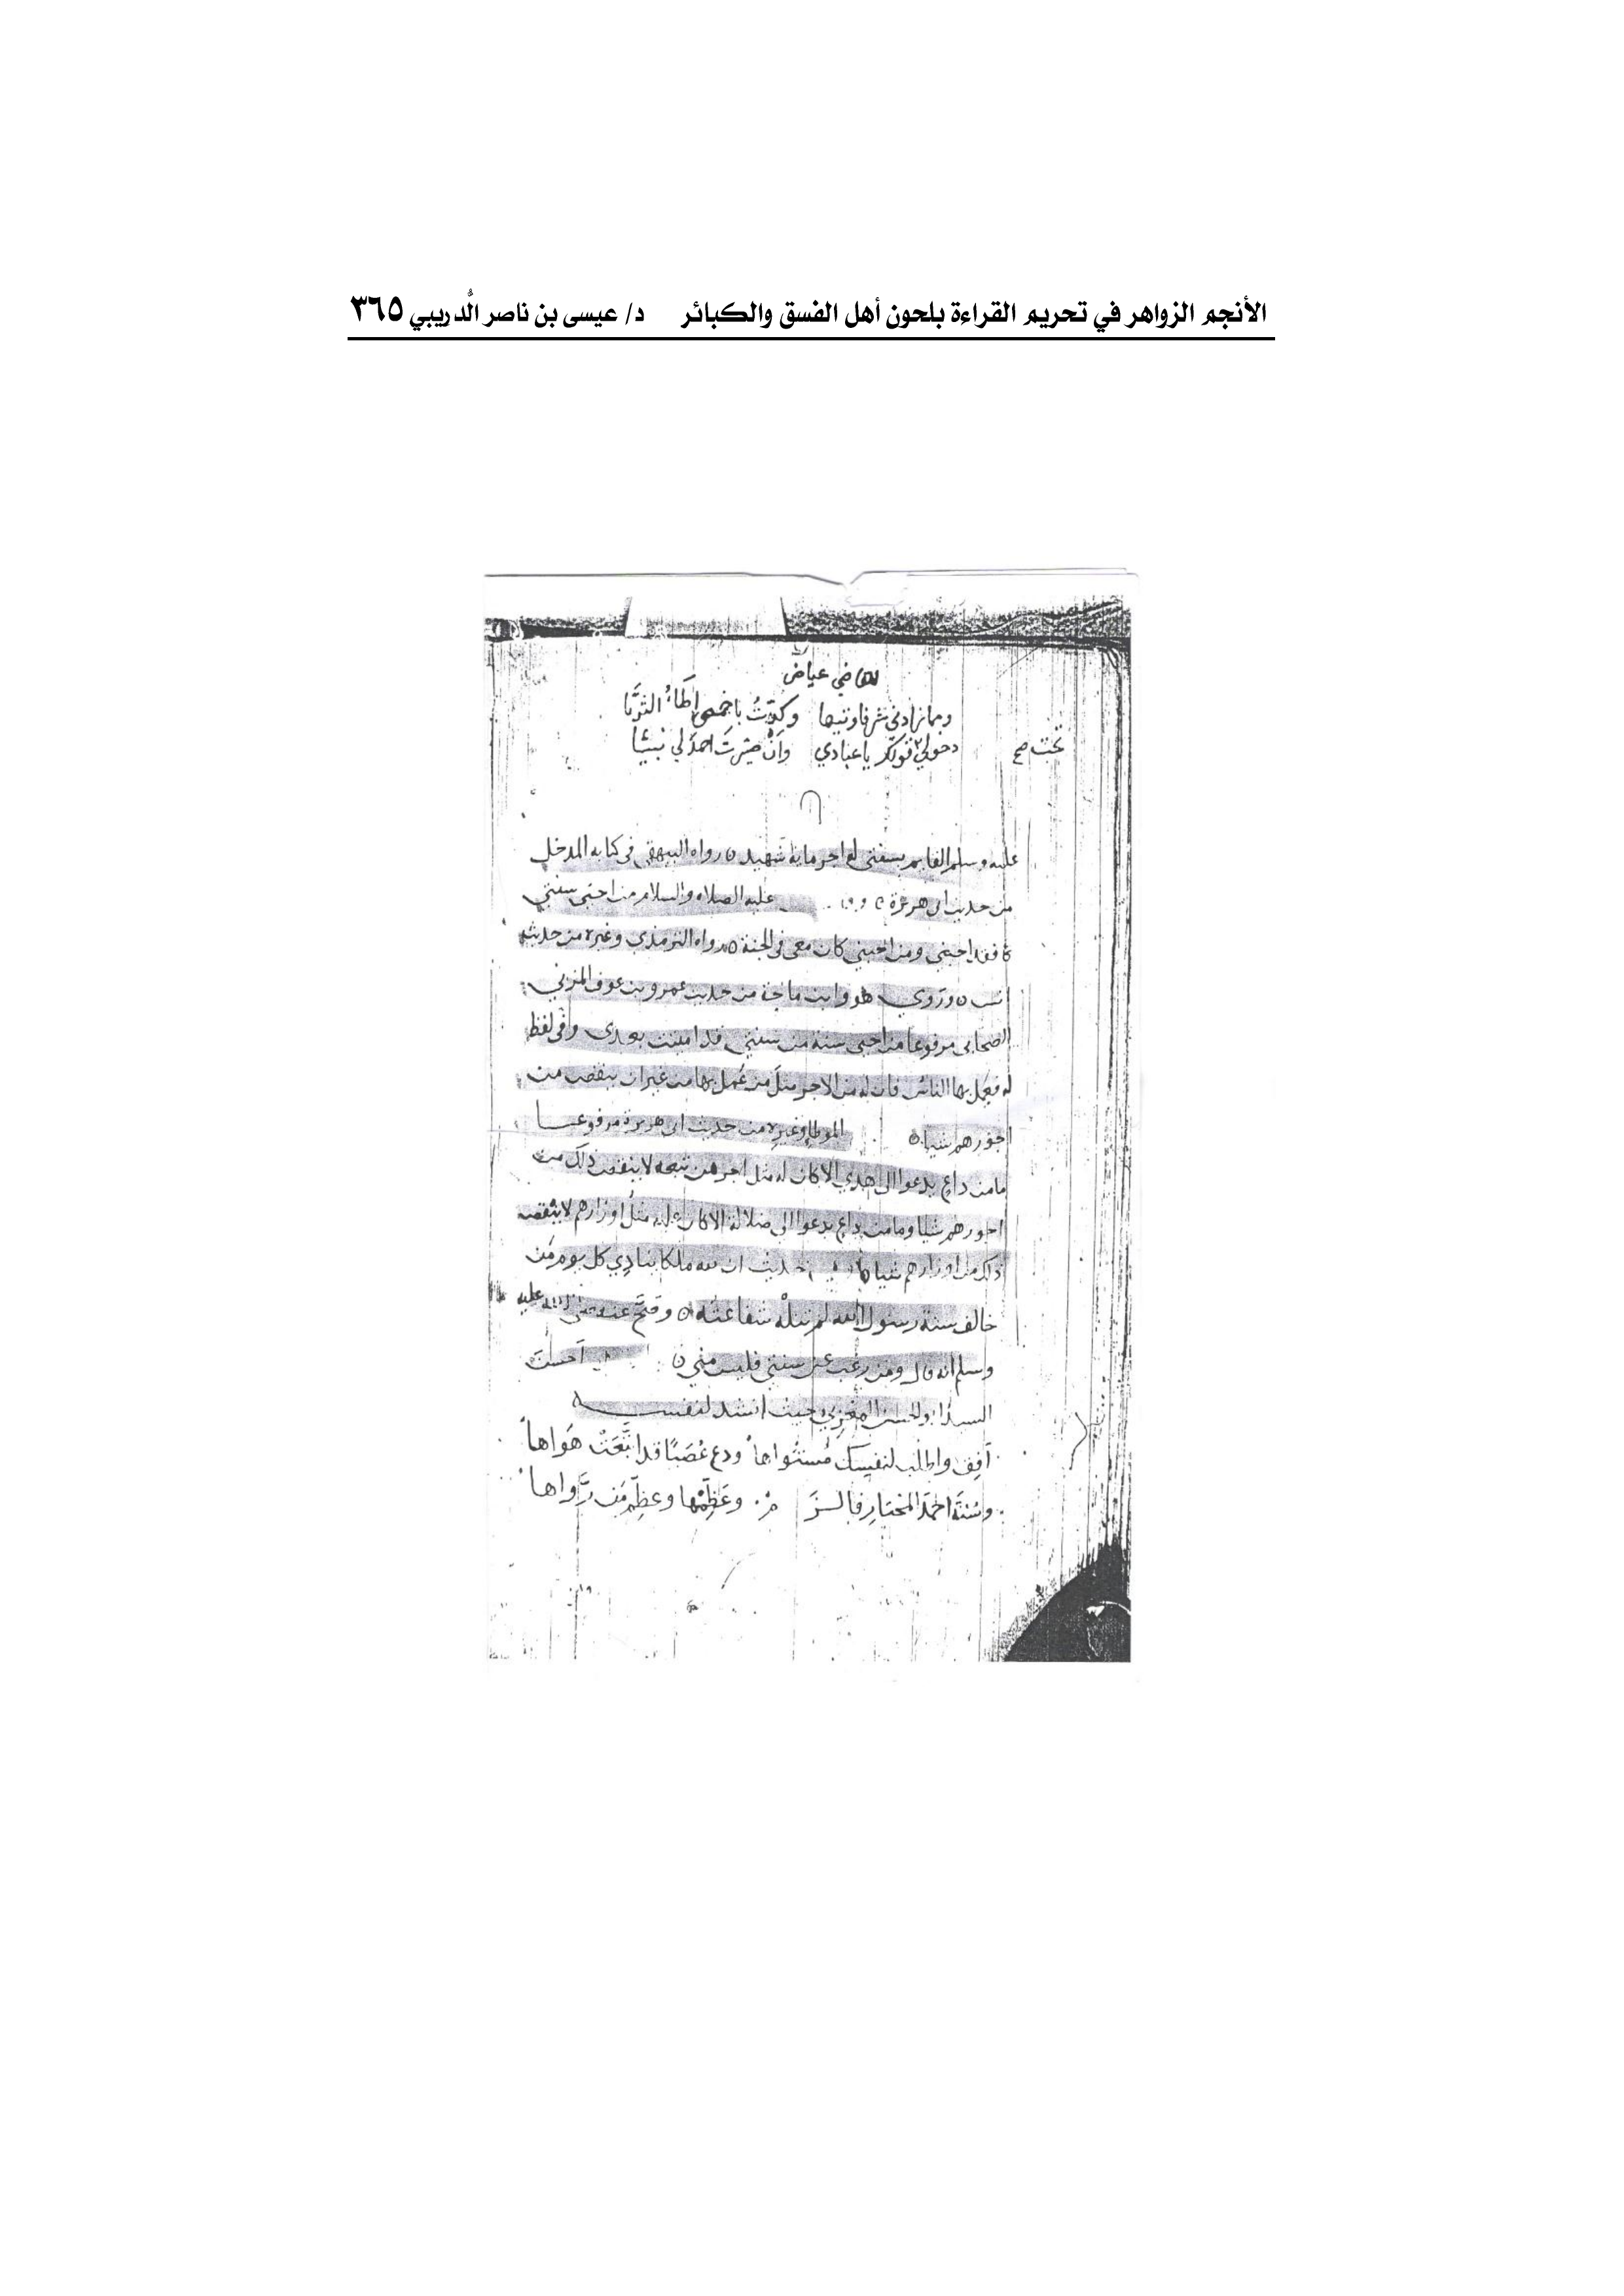 الأنجم الزواهر في تحريم القراءة بلحون أهل الفسق والكبائر د/ عيسى بن ناصر الدريبي ٣٦٥
القاضي عياض
ومما زادني شرفا وتيها وكدت باخمصي اطأ الثريا
دخولي تحت قولك يا عبادي وان صيرت احمد لي نبيا
تحت صح
عليه وسلم القايم بسنتي له اجر ماية شهيد ٥ رواه البيهقي في كتابه المدخل
من حديث ابي هريرة ٥ عليه الصلاه والسلام من احيى سنتي
فقد احبني ومن احبني كان معي في الجنة ٥ رواه الترمذي وغيره من حديث
انس ٥ وروي هو وابن ماجة من حديث عمرو بن عوف المزني
الصحابي مرفوعا من احيى سنة من سنتي قد اميتت بعدي وفي لفظ
له فعمل بها الناس فان له من الاجر مثل من عمل بها من غير ان ينقص من
اجورهم شيا ٥ الموطا وغيره من حديث ابي هريرة مرفوعا
ما من داع يدعوا الى هدي الا كان له مثل اجر من تبعه لا ينقص ذلك من
اجورهم شيا وما من داع يدعوا الى ضلالة الا كان عليه مثل اوزارهم لا ينقص
ذلك من اوزارهم شيا حديث ان لله ملكا ينادي كل يوم من
خالف سنة رسول الله لم تنله شفاعته ٥ وصح عنه صلى الله عليه
وسلم انه قال ومن رغب عن سنتي فليس مني ٥ احسن
السيد ابو الحسن المغربي حيث انشد لنفسه
افق واطلب لنفسك مستواها ودع عصبا قد اتبعت هواها
وسنة احمد المختار فالزم وعظمها وعظم من رواها